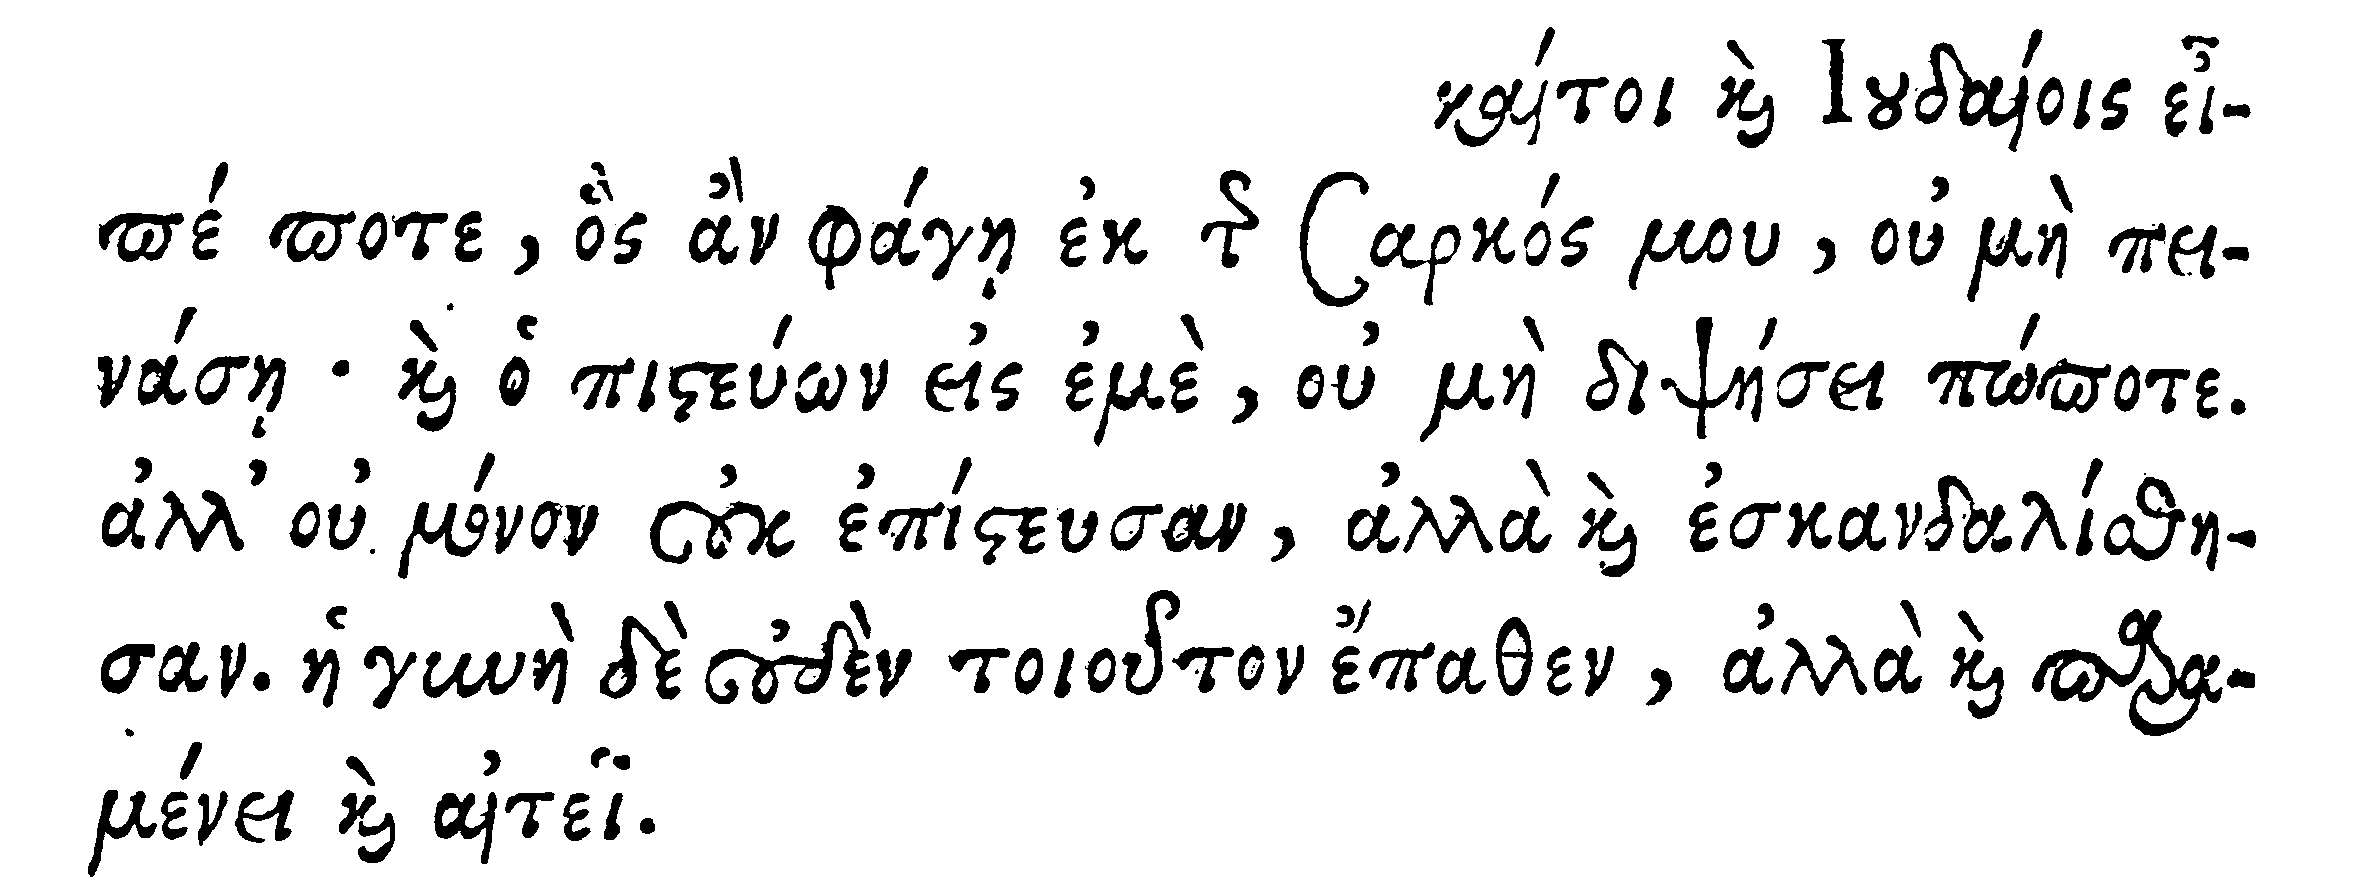 καίτοι καὶ Ἰουδαίοις εἶ-
πέ ποτε, ὃς ἂν φάγῃ ἐκ τῆς σαρκός μου, οὐ μὴ πει-
νάσῃ· καὶ ὁ πιστεύων εἰς ἐμὲ, οὐ μὴ διψήσει πώποτε.
ἀλλ' οὐ μόνον οὐκ ἐπίστευσαν, ἀλλὰ καὶ ἐσκανδαλίσθη-
σαν. ἡ γυνὴ δὲ οὐδὲν τοιοῦτον ἔπαθεν, ἀλλὰ καὶ παρα-
μένει καὶ αἰτεῖ.